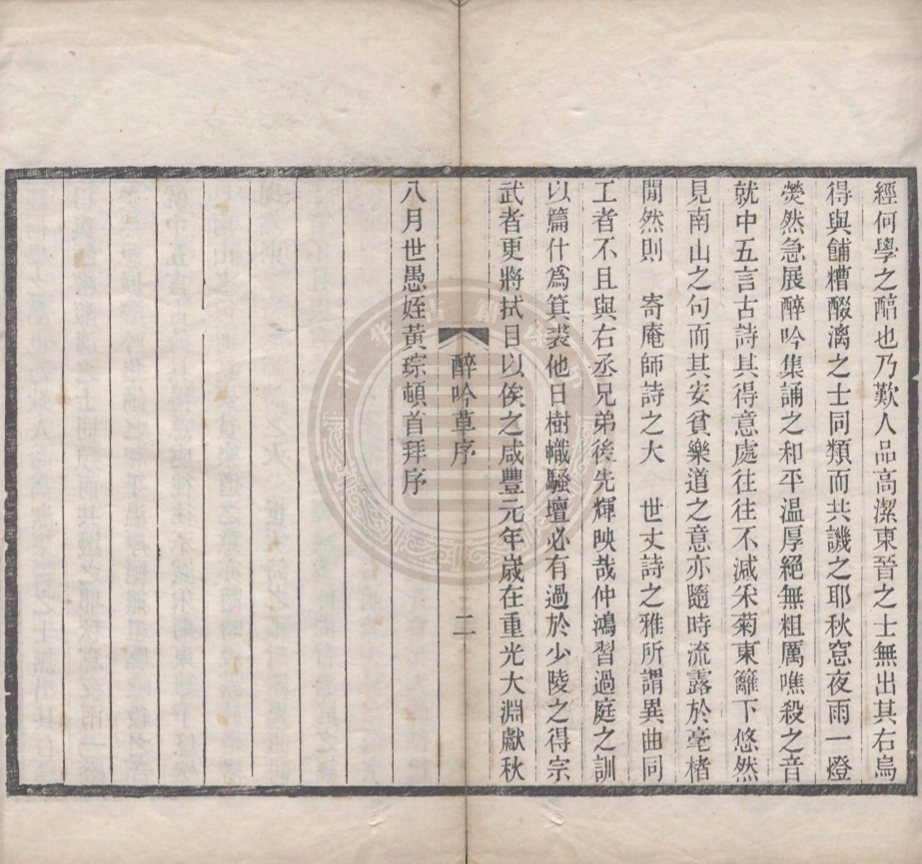 經何學之醅也乃歎人品高潔東晉之士無出其右烏
得與餔糟醊漓之士同類而共譏之耶秋窓夜雨一燈
熒然急展醉吟集誦之和平温厚絕無粗厲噍殺之音
就中五言古詩其得意處往往不減采菊東籬下悠然
見南山之句而其安貧樂道之意亦隨時流露於毫楮
閒然則　寄庵師詩之大　世丈詩之雅所謂異曲同
工者不且與右丞兄弟後先輝映哉仲鴻習過庭之訓
以篇什爲箕裘他日樹幟騷壇必有過於少陵之得宗
武者更將拭目以俟之咸豐元年歲在重光大淵獻秋
醉吟草序　二
八月世愚姪黃琮頓首拜序